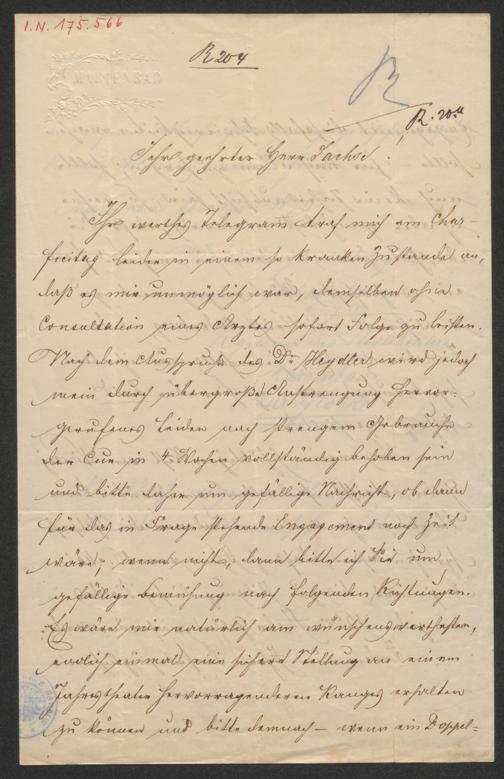 I.N. 175.566
R 204
MARIENBAD
R
R. 204
Sehr geehrter Herr Sachse!
Ihr werthes Telegram̅ traf mich am Char-
freitag leider in einem so kranken Zustande an,
daß es mir unmöglich war, demselben ohne
Consultation eines Arztes sofort Folge zu leisten.
Nach dem Ausspruch des Dr. Heydler wird jedoch
mein durch übergroße Anstrengung hervor-
gerufenes Leiden nach strengem Gebrauche
der Cur in 4 Wochen vollständig behoben sein
und bitte daher um gefällige Nachricht, ob dann
für das in Frage stehende Engagement noch Zeit
wäre; wenn nicht, dann bitte ich Sie um
gefällige Bemühung nach folgenden Richtungen.
Es wäre mir natürlich am wünschenswerthesten,
endlich einmal eine sichere Stellung an einem
Jahrestheater hervorragenderen Ranges erhalten
zu können und bitte demnach – wenn ein Doppel-